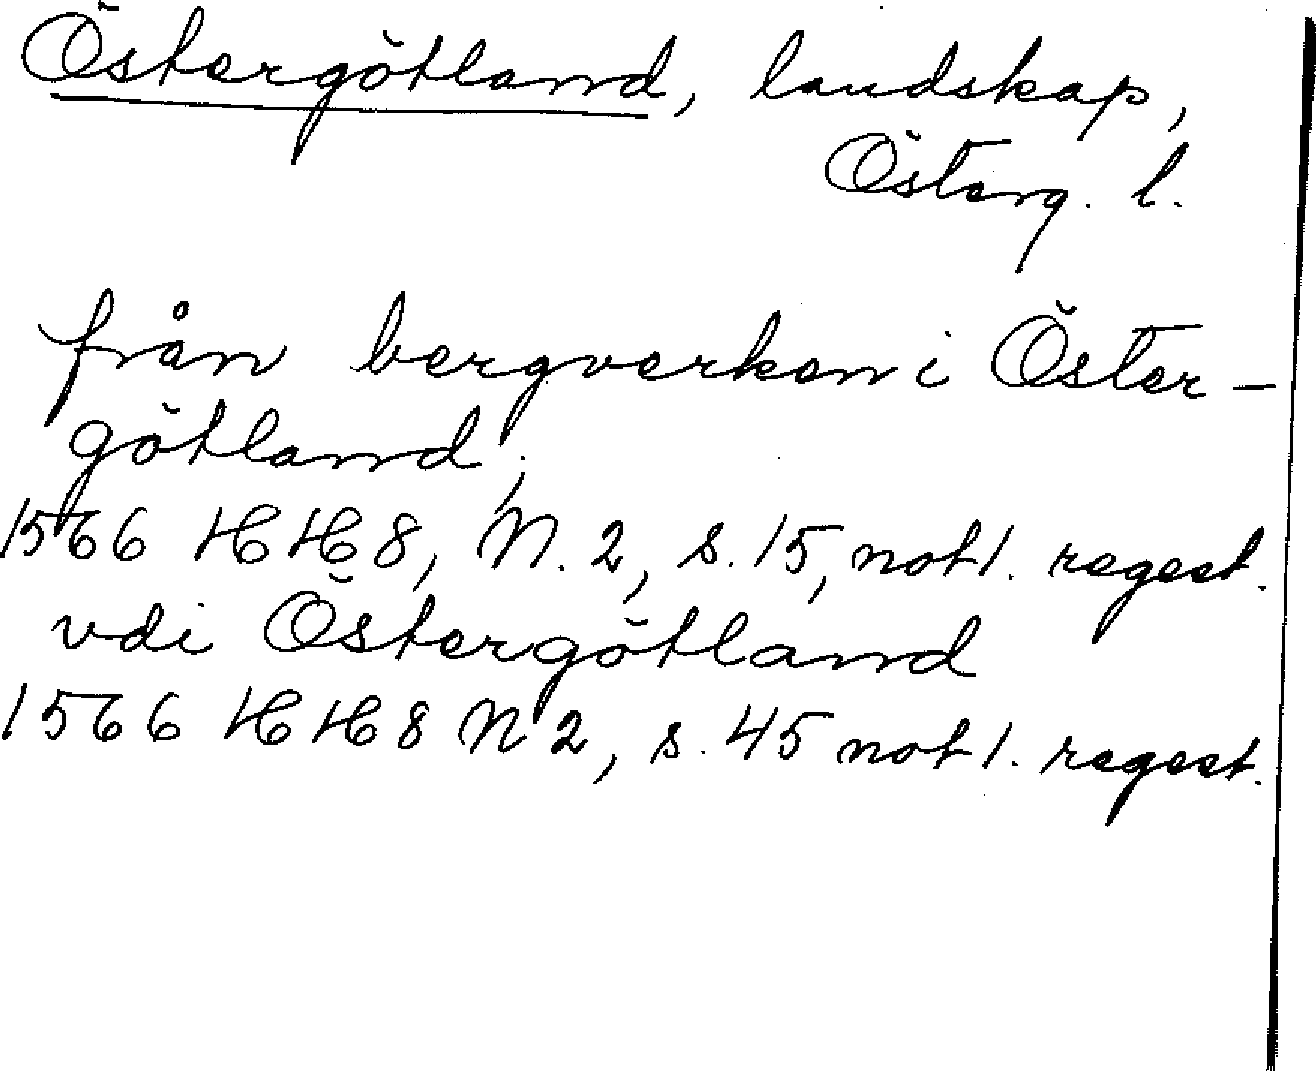 Östergötland, landskap,
Österg. l.
från bergverken i Öster-
götland,
1566 HH8, N. 2, s. 15, not 1. regest.
vdi Östergötland
1566 HH8 N 2, s. 45 not 1. regest.